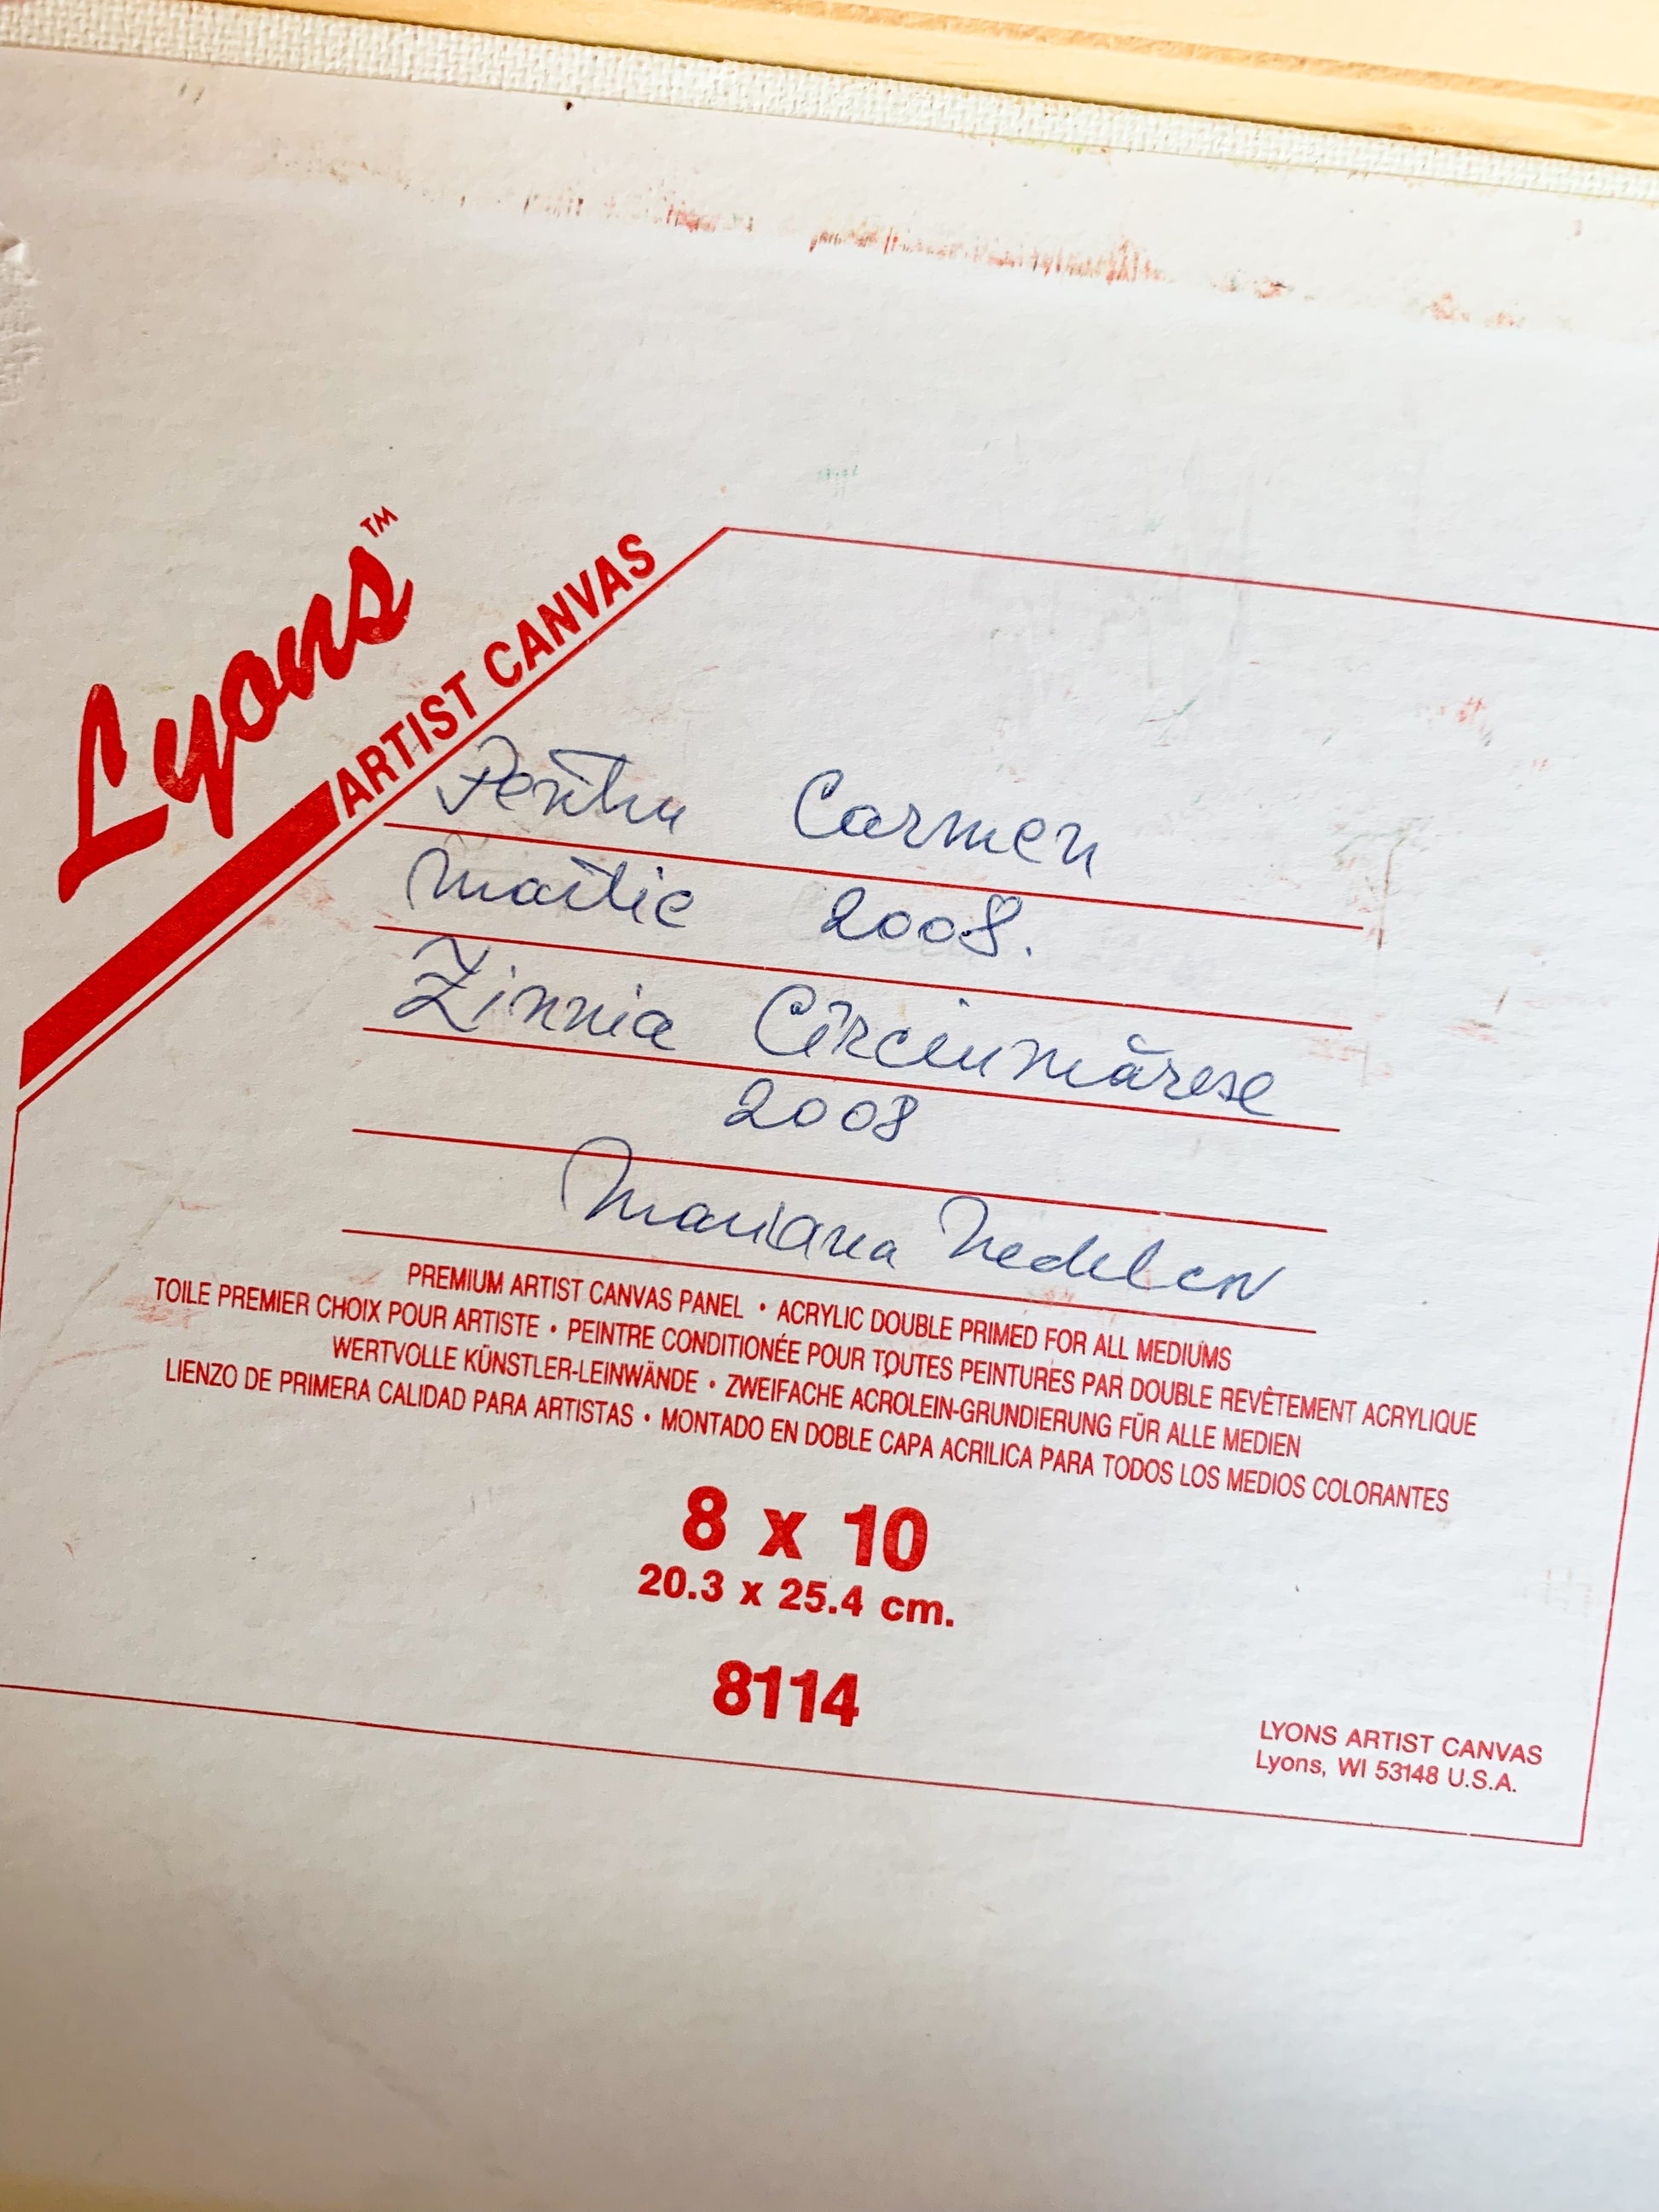 Lyons™
ARTIST CANVAS
Pentru Carmen
Martie 2008.
Zinnia Cîrciumărese
2008
Mariana Nedelcu
PREMIUM ARTIST CANVAS PANEL • ACRYLIC DOUBLE PRIMED FOR ALL MEDIUMS
TOILE PREMIER CHOIX POUR ARTISTE • PEINTRE CONDITIONÉE POUR TOUTES PEINTURES PAR DOUBLE REVÊTEMENT ACRYLIQUE
WERTVOLLE KÜNSTLER-LEINWÄNDE • ZWEIFACHE ACROLEIN-GRUNDIERUNG FÜR ALLE MEDIEN
LIENZO DE PRIMERA CALIDAD PARA ARTISTAS • MONTADO EN DOBLE CAPA ACRILICA PARA TODOS LOS MEDIOS COLORANTES
8 x 10
20.3 x 25.4 cm.
8114
LYONS ARTIST CANVAS
Lyons, WI 53148 U.S.A.